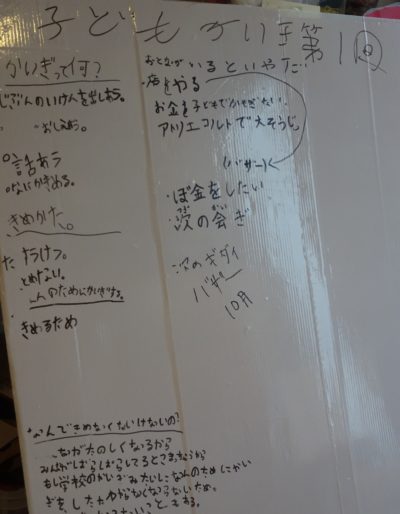 子どもかいぎ第1回
かいぎってなに?
じぶんのいけんを出しあう。
・おしえあう。
○話あう
○なにかきめる。
きめかた。
とめない。
きめるため
おとながいるといやだ…
店をやる
お金を子どもでかせぎたい。
アトリエコルトで大そうじ。
(バザー)
・ぼ金をしたい
・次の会ぎ
次のギダイ
バザー
10月
なんできめなくちゃいけないの?
たのしくなるから
みんながばらばらしてるとこまるから?
もし学校のかいぎみたいになんのためにかい
ぎをしたかわからなくならないため。